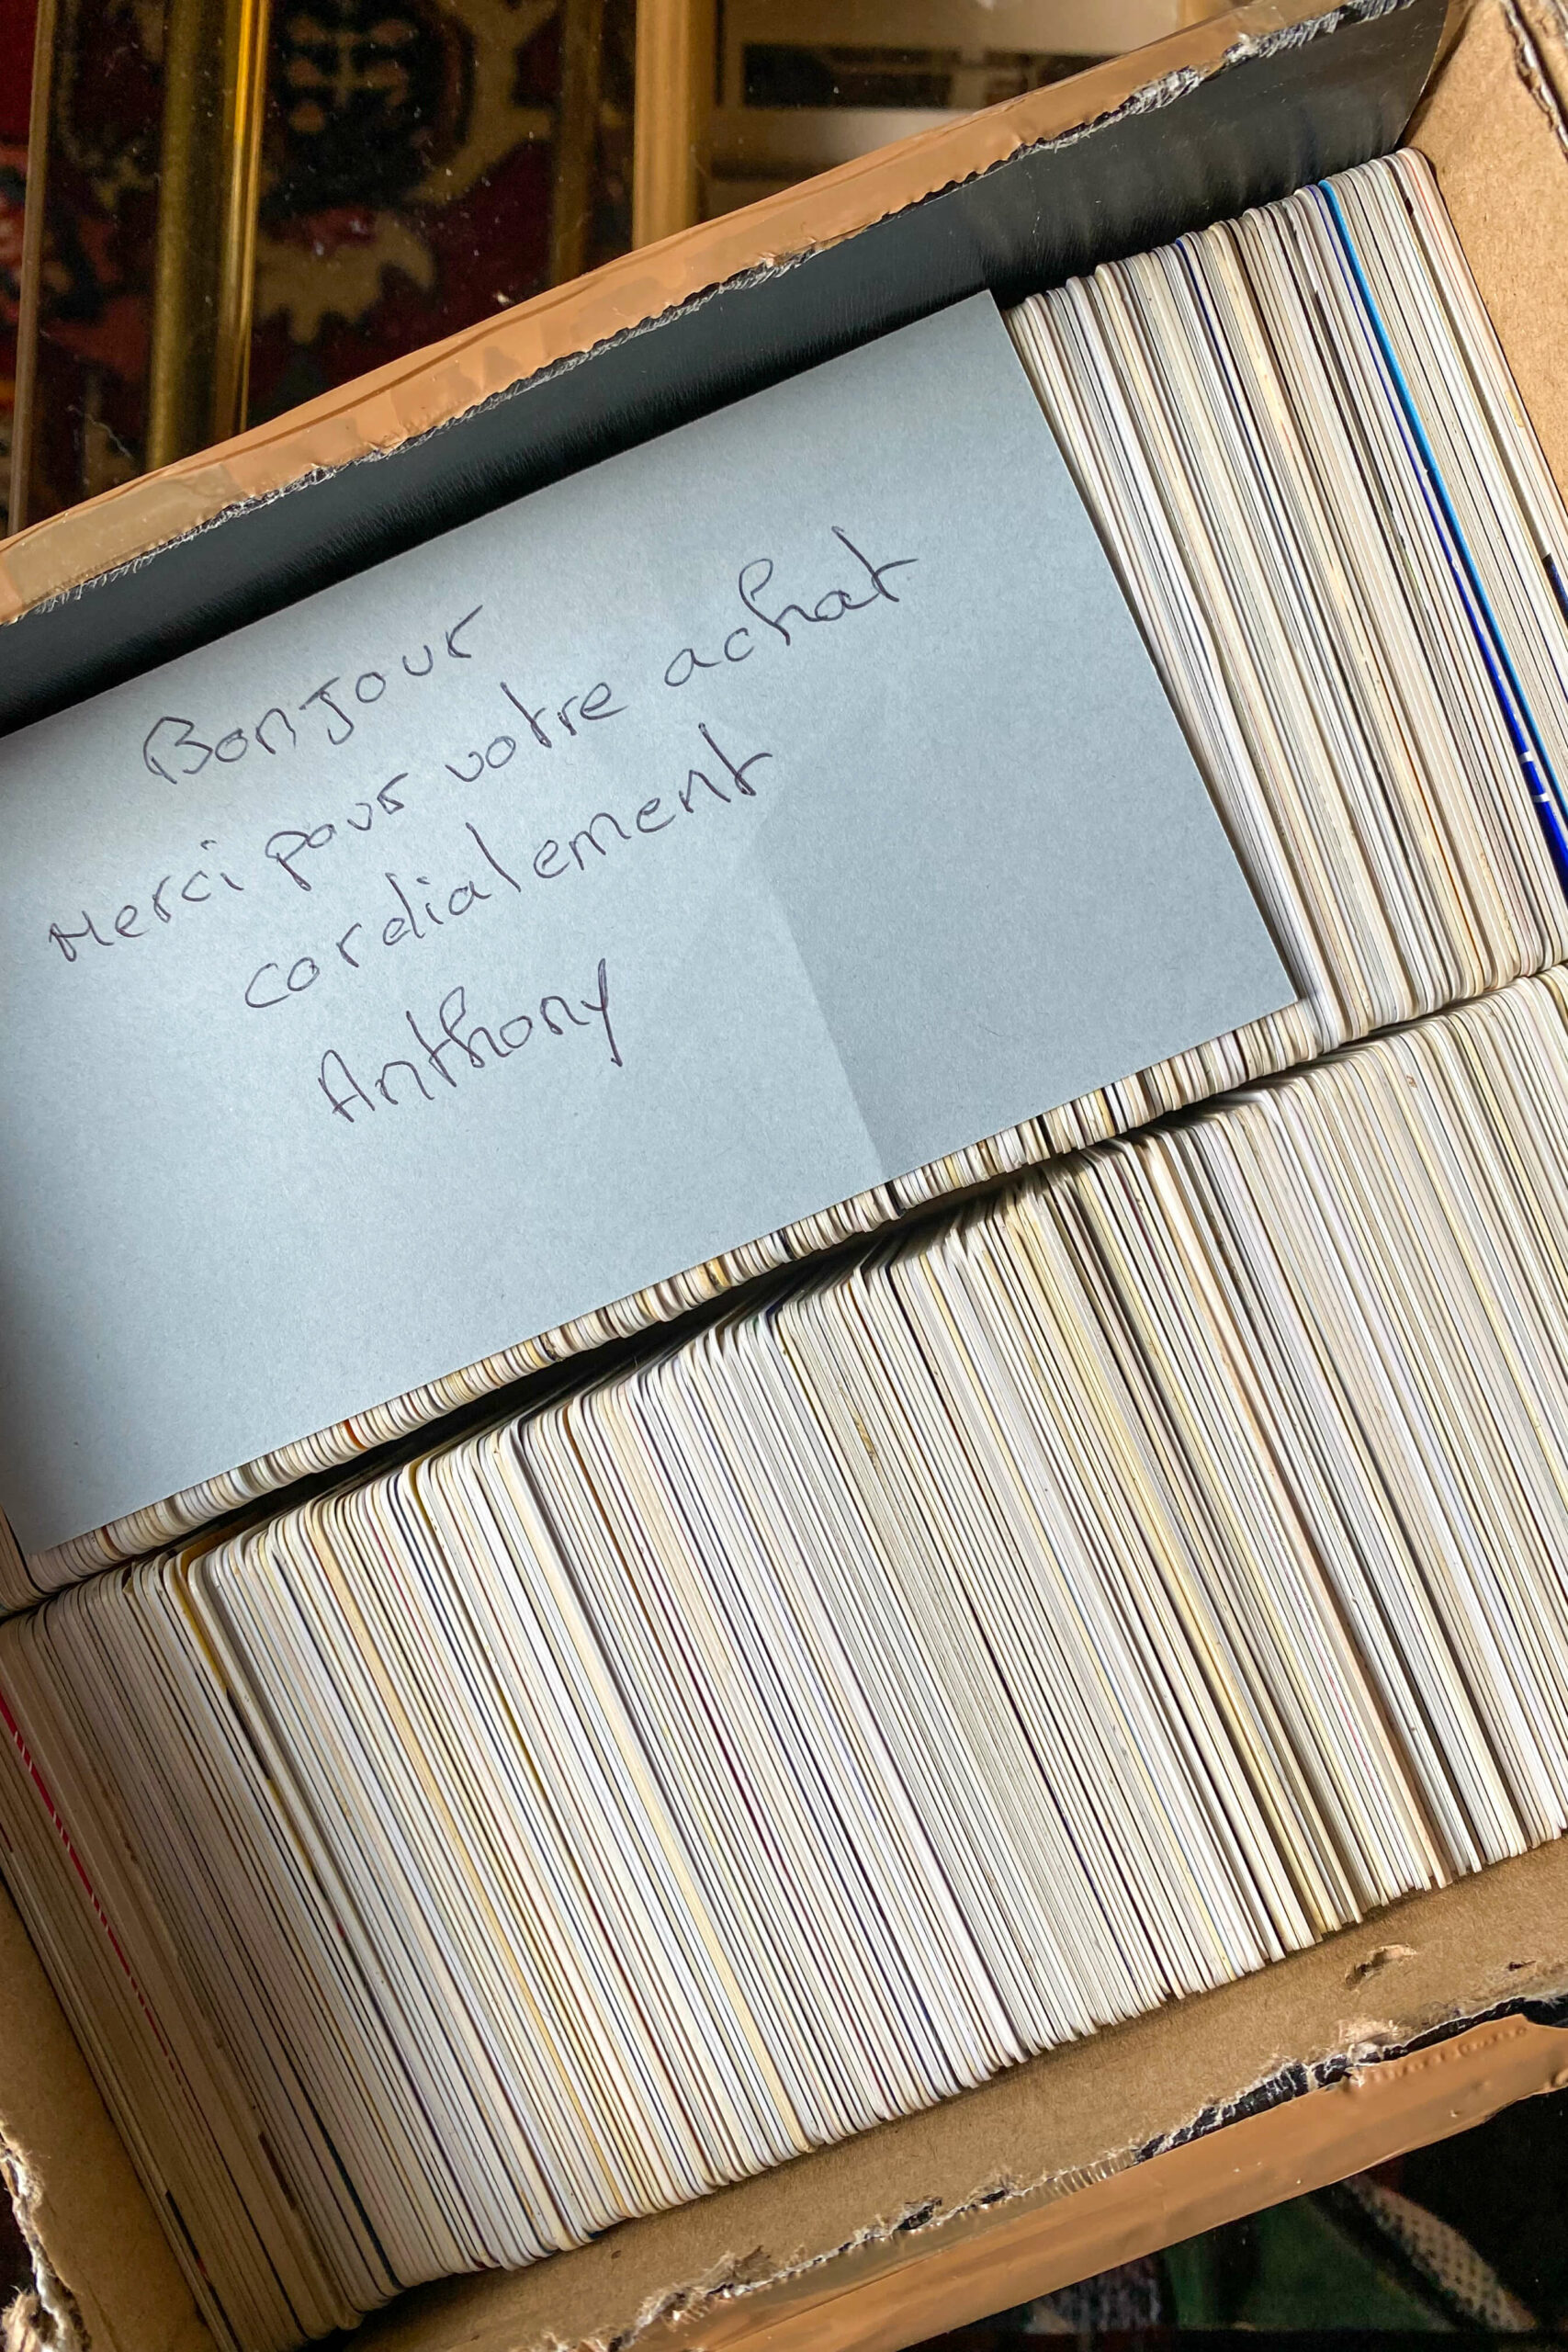 Bonjour
Merci pour votre achat
cordialement
Anthony